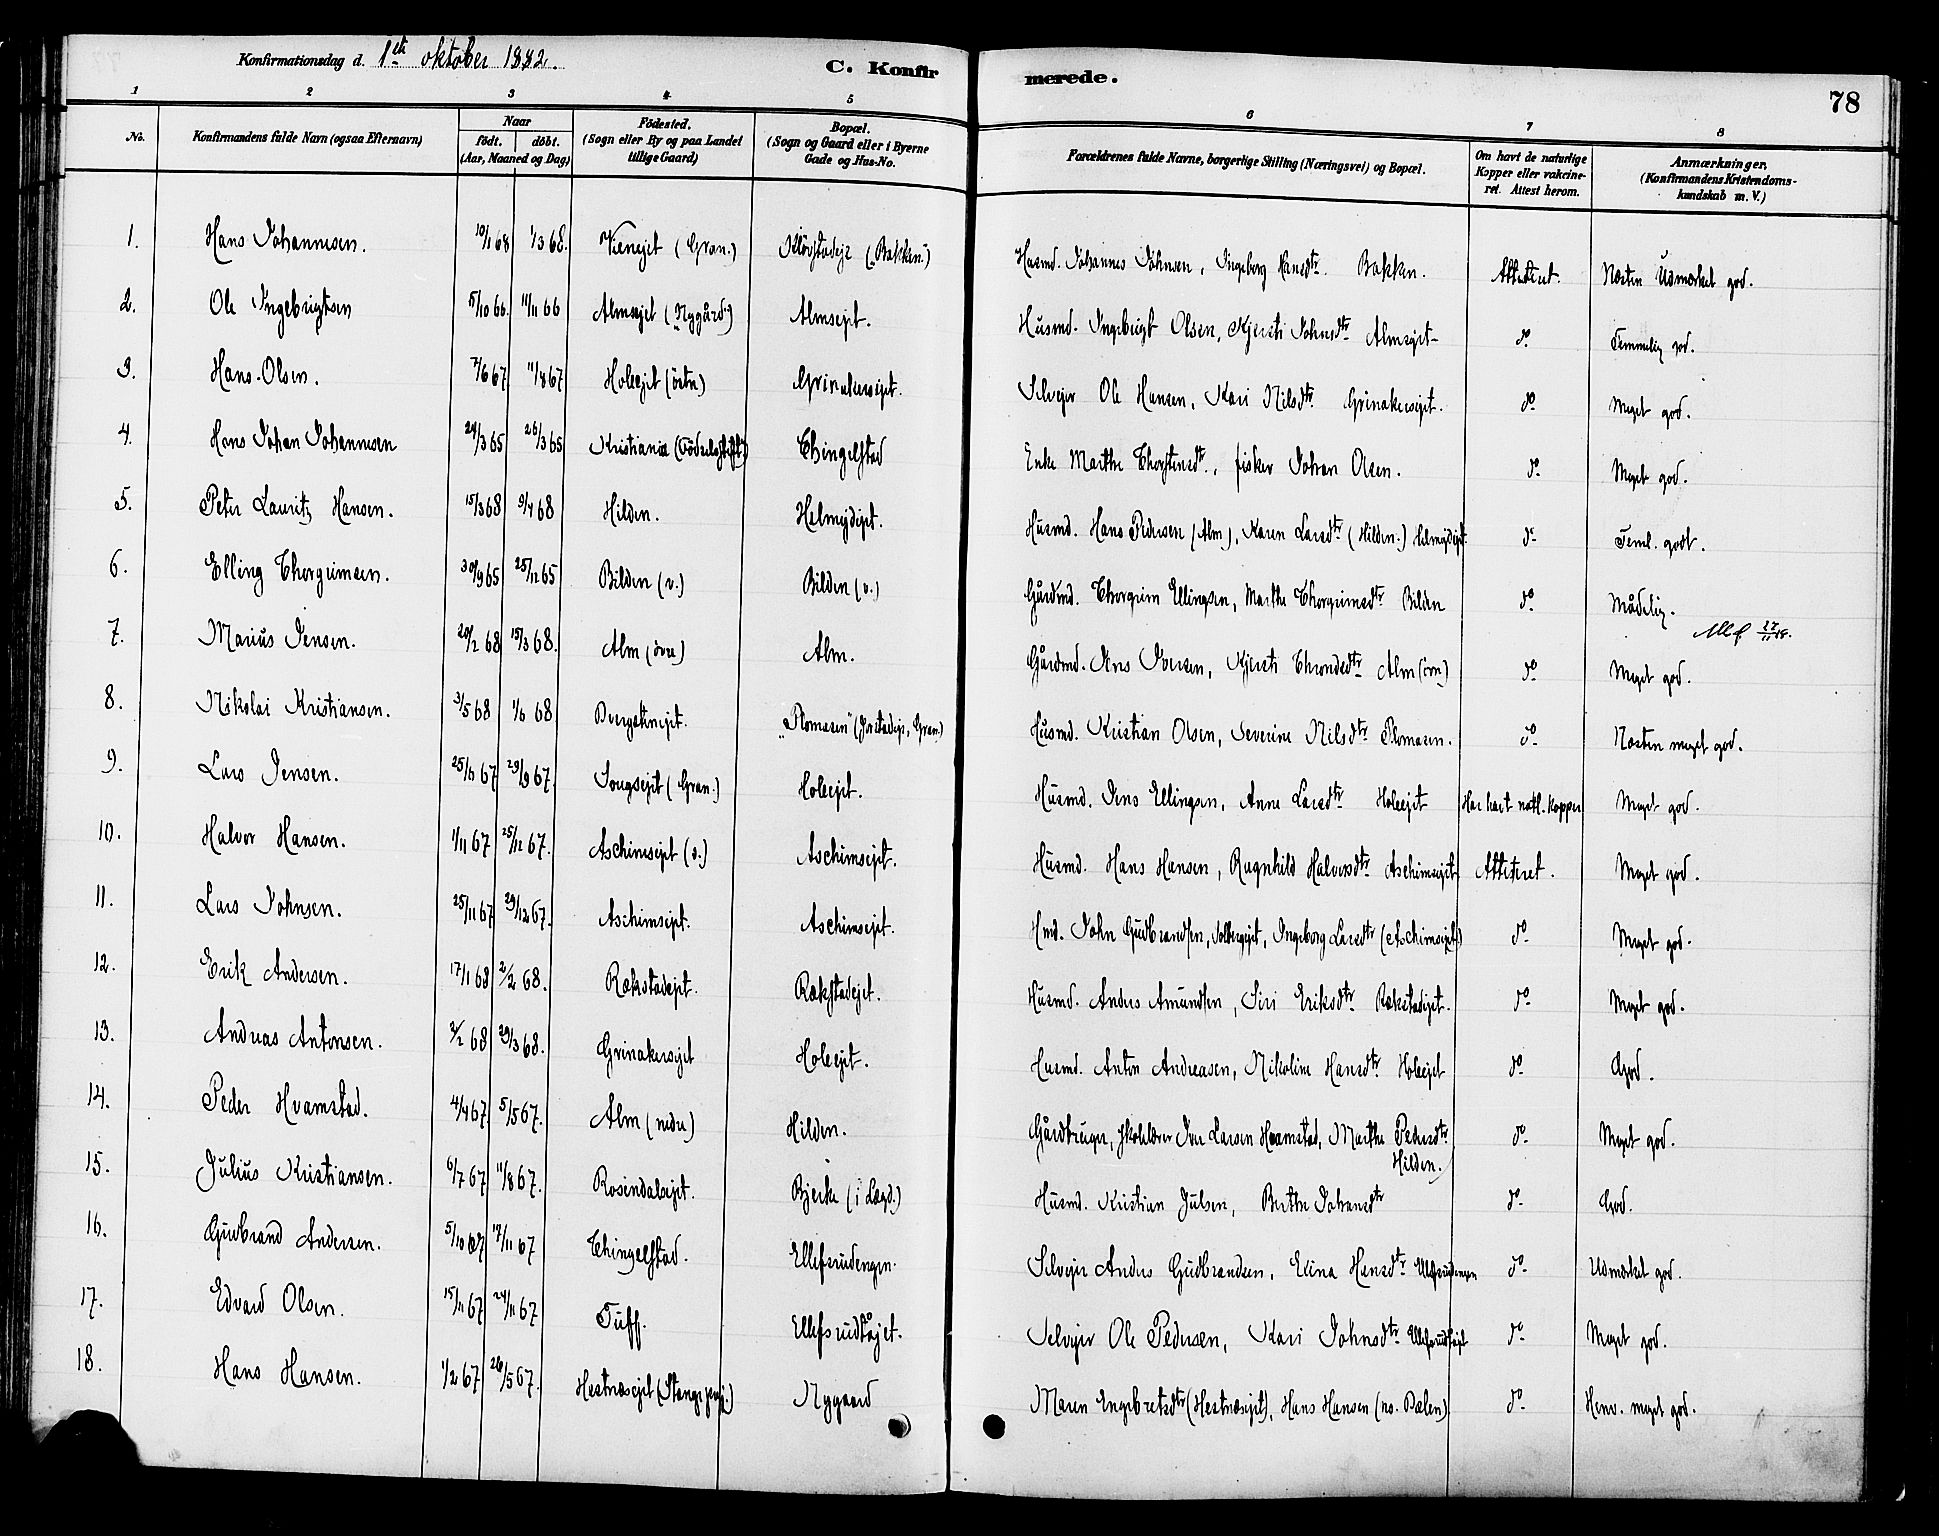 Konfirmationsdag d. 1ste oktober 1882.
C. Konfirmerede.
78
1 2 3 4 5 6 7 8
No.
Konfirmandens fulde Navn (ogsaa Efternavn)
Naar
födt. döbt.
(Aar, Maaned og Dag)
Födested.
(Sogn eller By og paa Landet
tillige Gaard)
Bopæl.
(Sogn og Gaard eller i Byerne
Gade og Hus-No.
Forældrenes fulde Navne, borgerlige Stilling (Næringsvei) og Bopæl.
Om havt de naturlige
Kopper eller vakcine-
ret. Attest herom.
Anmærkninger.
(Konfirmandens Kristendoms-
kundskab m. V.)
1. Hans Johannesen. 10/1 68 1/3 68. (Gran.) ("Bakken") Husmd. Johannes Johnsen, Ingeborg Hansdtr. Bakken. Attesteret. Næsten Udmærket god.
2. Ole Ingebrigtsen 5/10 66. 11/11 66 Almsejet (Nygård.) Almsejet. Husmd. Ingebrigt Olsen, Kjersti Johnsdtr Almsejet- do Temmelig god.
3. Hans Olsen. 7/6 67 11/8 67 Holeejet (östn) Grinakersejet. Selvejer Ole Hansen, Kari Nilsdtr. Grinakersejet. do Meget god.
4. Hans Johan Johannesen 24/3 65 26/3 65 Kristiania (Födselsstift.) Thingelstad Enke Marthe Thorstensdtr., fisker Johan Olsen. do Meget god.
5. Peter Lauritz Hansen. 15/3 68 9/4 68 Hilden. Helmejdejet. Husmd. Hans Pedersen (Alm), Karen Larsdtr (Hilden.) do Teml. godt.
6. Elling Thorgrimsen. 30/9 65 25/12 65 Bilden (v.) Bilden (v.) Gårdmd. Thorgrim Ellingsen, Marthe Thorgrimsdtr Bilden do Mådelig.
7. Marius Jensen. 20/2 68 15/3 68. Alm (övre) Alm. Gårdmd. Jens Iversen, Kjersti Throndsdtr Alm (övre) do Meget god.
8. Nikolai Kristiansen. 3/5 68 1/6 68 Dvergstenejet. "Plomasen" (Jorstadeje, Gran.) Husmd. Kristian Olsen, Severine Nilsdtr Plomasen. do Næsten meget god.
9. Lars Jensen. 29/9 67. Sougsejet (Gran.) Holeejet. Husmd. Jens Ellingsen, Anne Larsdtr Holeejet Har havt natl. kopper Meget god.
10. Halvor Hansen. 1/11 67 25/12 67. Aschimsejet (s.) Aschimsejet. Husmd. Hans Hansen, Ragnhild Halvorsdtr Aschimsejet Attesteret. Meget god.
11. Lars Johnsen. 25/11 67 29/12 67. Aschimsejet. Aschimsejet. Hmd. John Gudbrandsen, Solbergejet, Ingeborg Larsdtr (Aschimsejet) do Meget god.
12. Erik Andersen. 17/1 68 2/2 68. Rækstadejet. Rækstadejet. Husmd. Anders Amundsen, Siri Eriksdtr Rækstadejet. do Meget god.
13. Andreas Antonsen. 2/2 68 29/3 68. Grinakersejet Holeejet. Husmd. Anton Andreasen, Nikoline Hansdtr Holeejet do God.
14. Peder Hvamstad. 4/4 67 5/5 67. Alm (nedre) Hilden. Gårdbruger, skolelærer Iver Larsen Hvamstad, Marthe Pedersdtr
Hilden. do Meget god.
15. Julius Kristiansen. 6/7 67 11/8 67. Rosendalsejet. Bjerke (i Lægd.) Husmd. Kristian Julsen, Berthe Johansdtr do God.
16. Gudbrand Andersen. 5/10 67 17/11 67 Thingelstad. Ellefsrudengen. Selvejer Anders Gudbrandsen, Elina Hansdtr Ellefsrudengen do Udmærket god.
17. Edvard Olsen. 15/11 67 24/11 67 Tuff. Ellefsrudtajet. Selvejer Ole Pedersen, Kari Johnsdtr. do Meget god.
18. Hans Hansen. 1/2 67 26/5 67. Hestnæsejet (Stange prgj.) Nygaard Maren Engebretsdtr (Hestnæsejet), Hans Hansen (no. Dælen) do Henv. meget god.